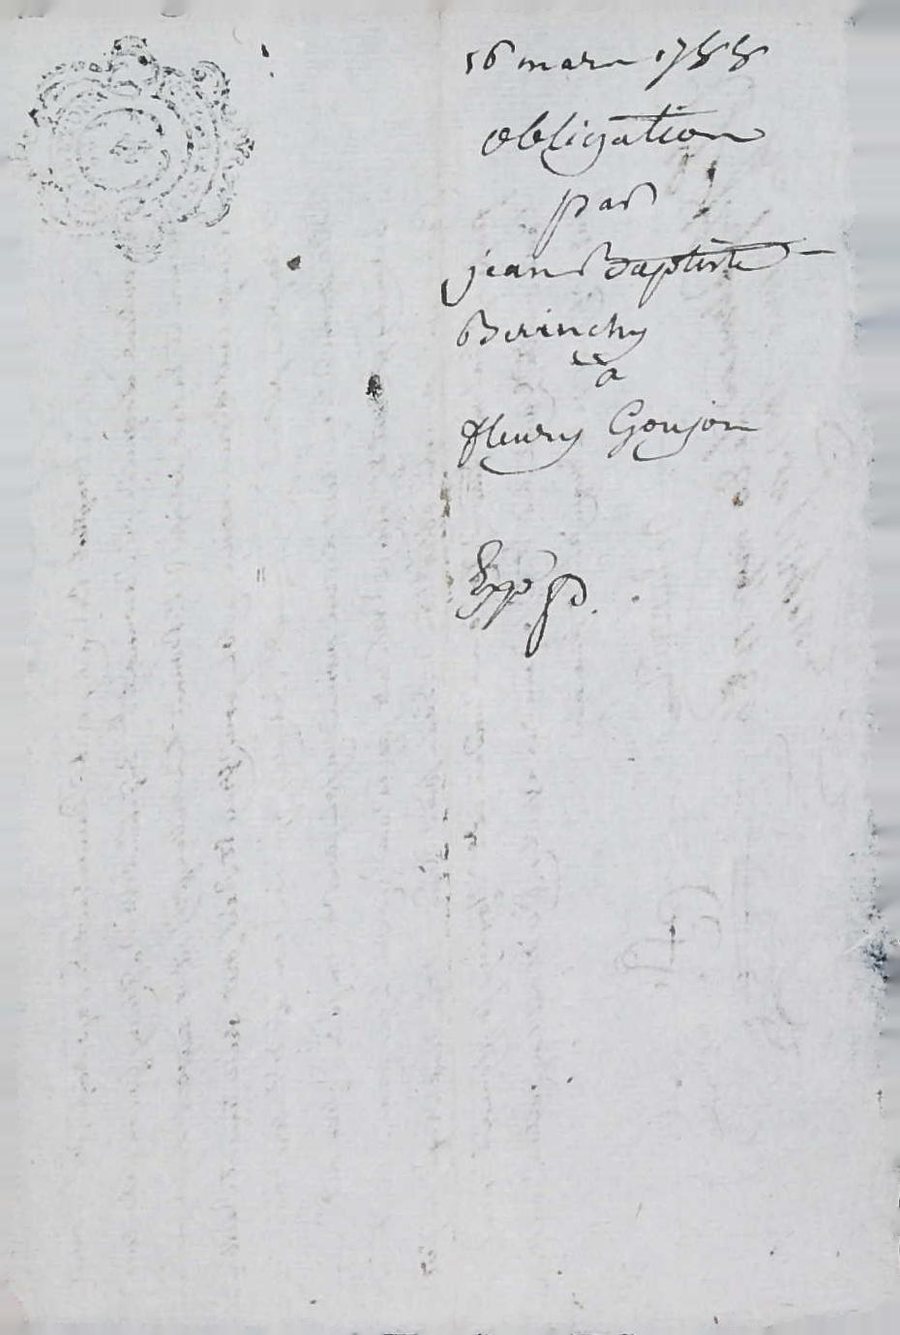 16 mars 1788
obligation
par
jean Baptiste
Berinchy
a
fleury Goujon
Exp